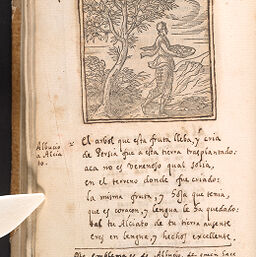 Albucio
a Alcia
to.
El arbol que esta fruta lleba, y cria
de Persia fue a esta tierra trasplantado:
aca no es venenoso qual solia,
en el terreno donde fue criado:
la misma fruta, y hoja que tenia,
que es coraçon, y lengua le ha quedado:
tal tu Alciato de tu tierra ausente
eres en lengua, y hechos excellente.
emblema es de Albucio